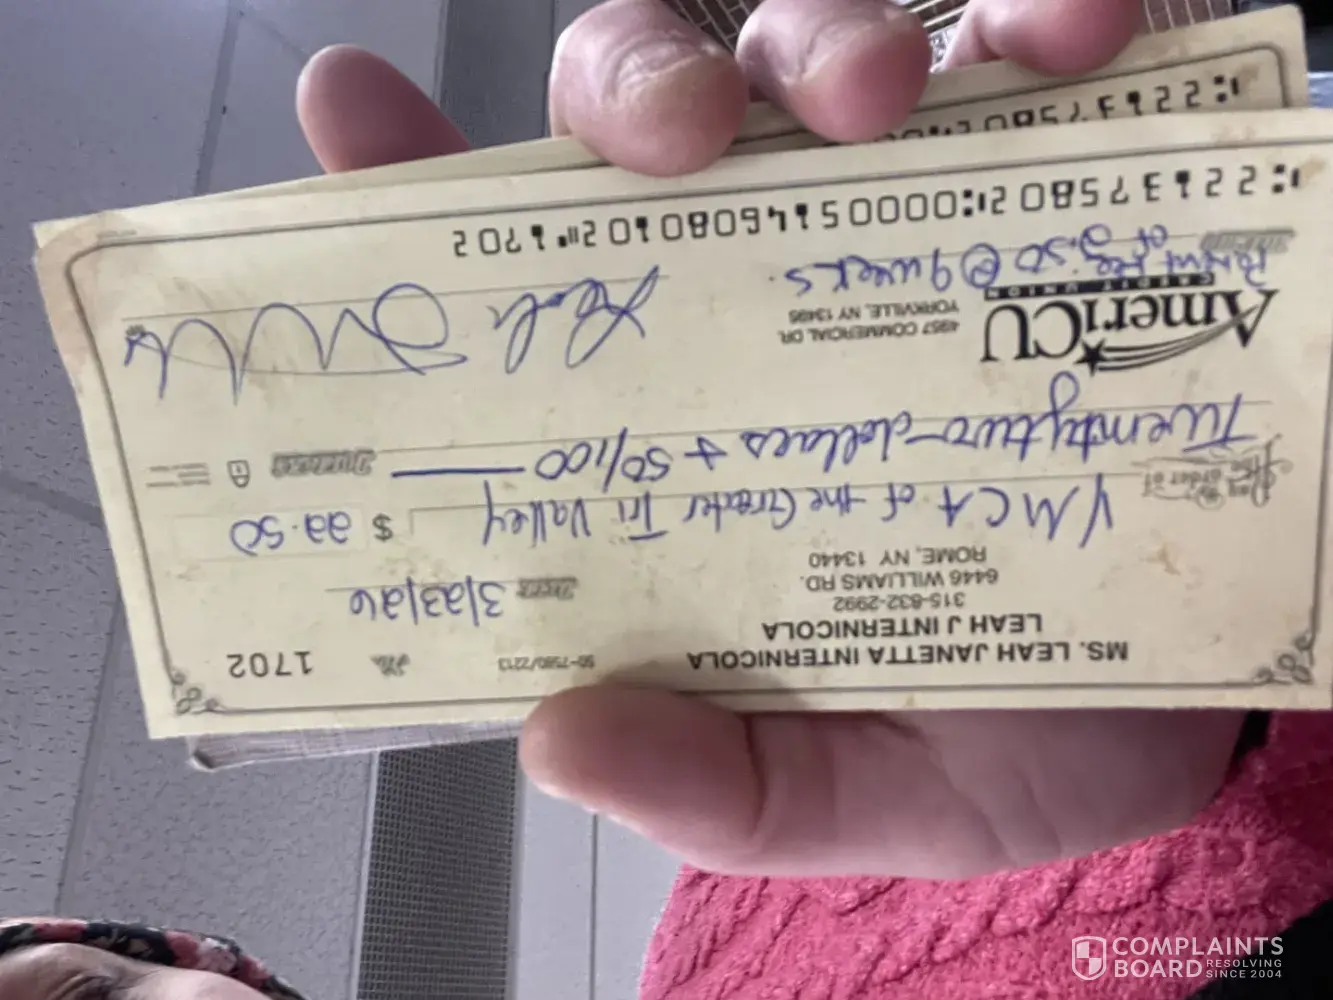 MS. LEAH JANETTA INTERNICOLA
LEAH J INTERNICOLA
315-832-2992
6446 WILLIAMS RD.
ROME, NY 13440
50-7580/2213
1702
DATE 3/23/26
Pay to the order of YMCA of the Greater Tri Valley $ 22.50
Twenty two dollars + 50/100 DOLLARS
AMERICU
CREDIT UNION
4957 COMMERCIAL DR.
YORKVILLE, NY 13495
Parent fee of 2.50 @ 9 weeks.
⑆221375802⑆00005146080102⑈1702
COMPLAINTS
BOARD RESOLVING
SINCE 2004